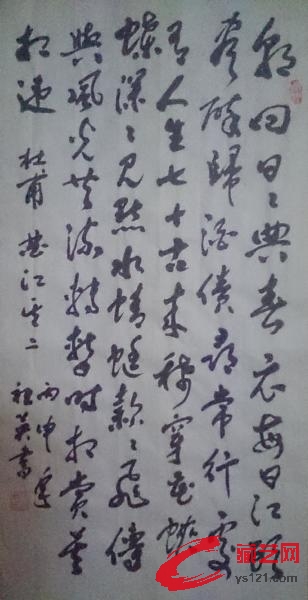 朝回日〻典春衣每日江頭
盡醉歸酒債尋常行處
有人生七十古来稀穿花蛺
蝶深〻見點水蜻蜓款〻飛傳
與風光共流轉暫時相賞莫
相违 杜甫 曲江其二
丙申年
英書
藏艺网
ys121.com